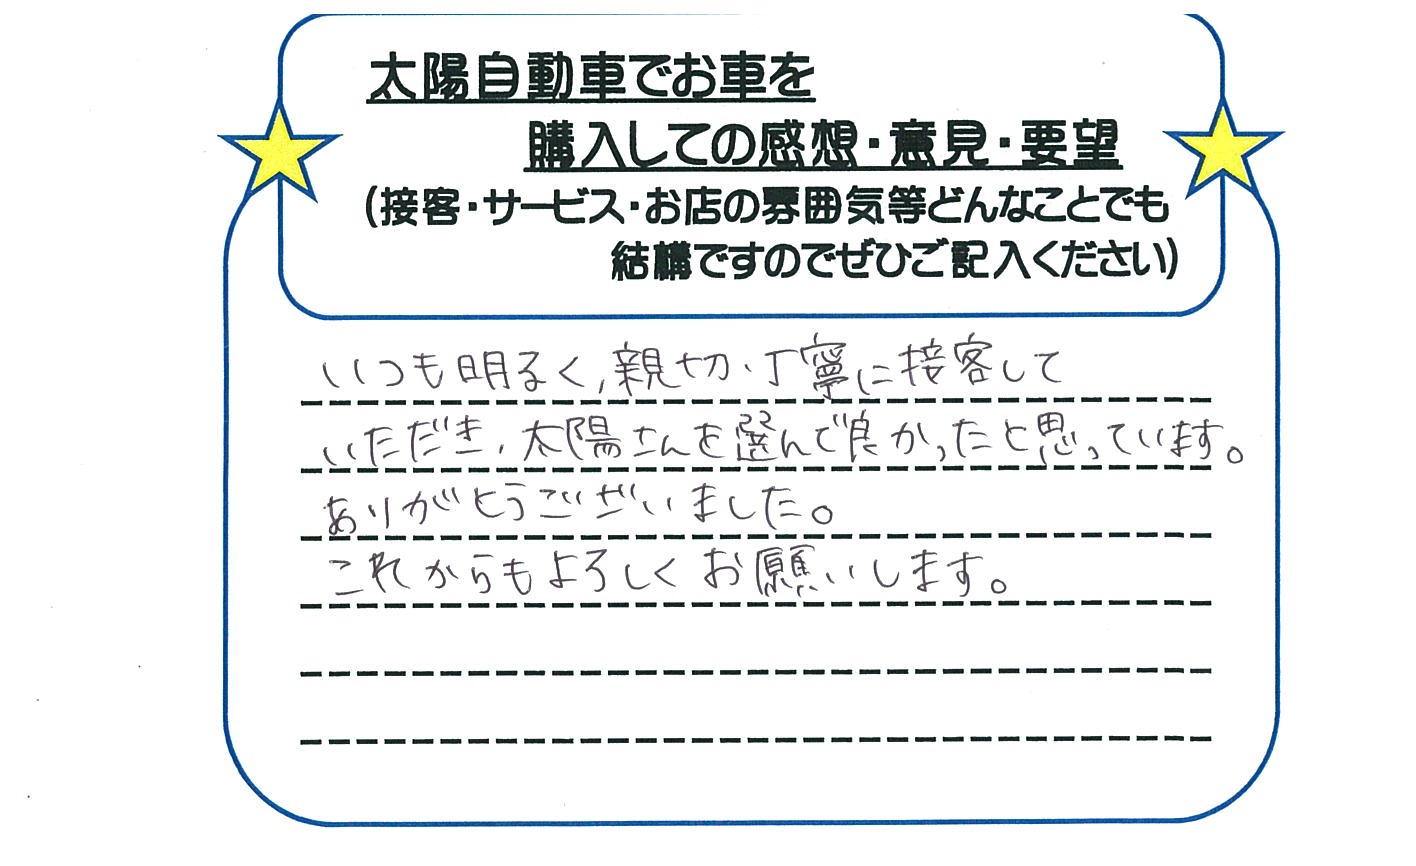 太陽自動車でお車を
購入しての感想・意見・要望
(接客・サービス・お店の雰囲気等どんなことでも
結構ですのでぜひご記入ください)
いつも明るく,親切・丁寧に接客して
いただき,太陽さんを選んで良かったと思っています。
ありがとうございました。
これからもよろしくお願いします。